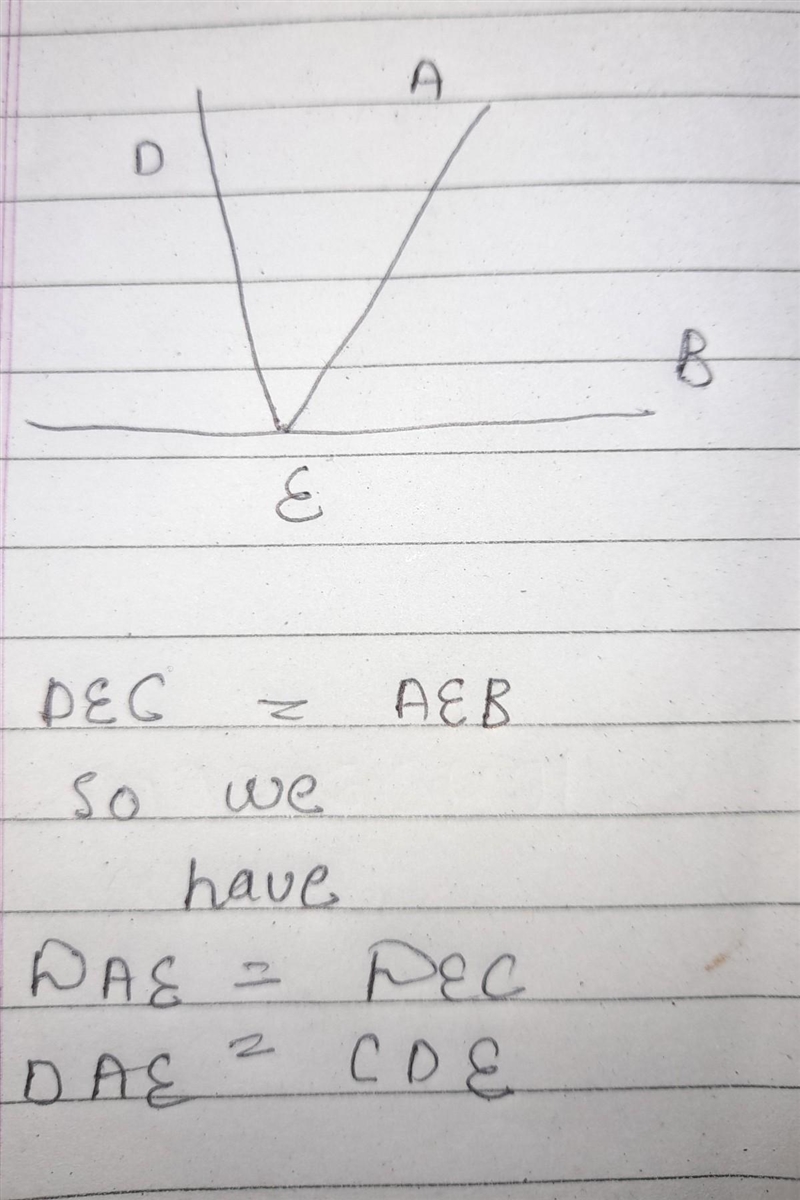 A
D
B
E
DEC = AEB
so we
have
DAE = DEC
DAE = CDE